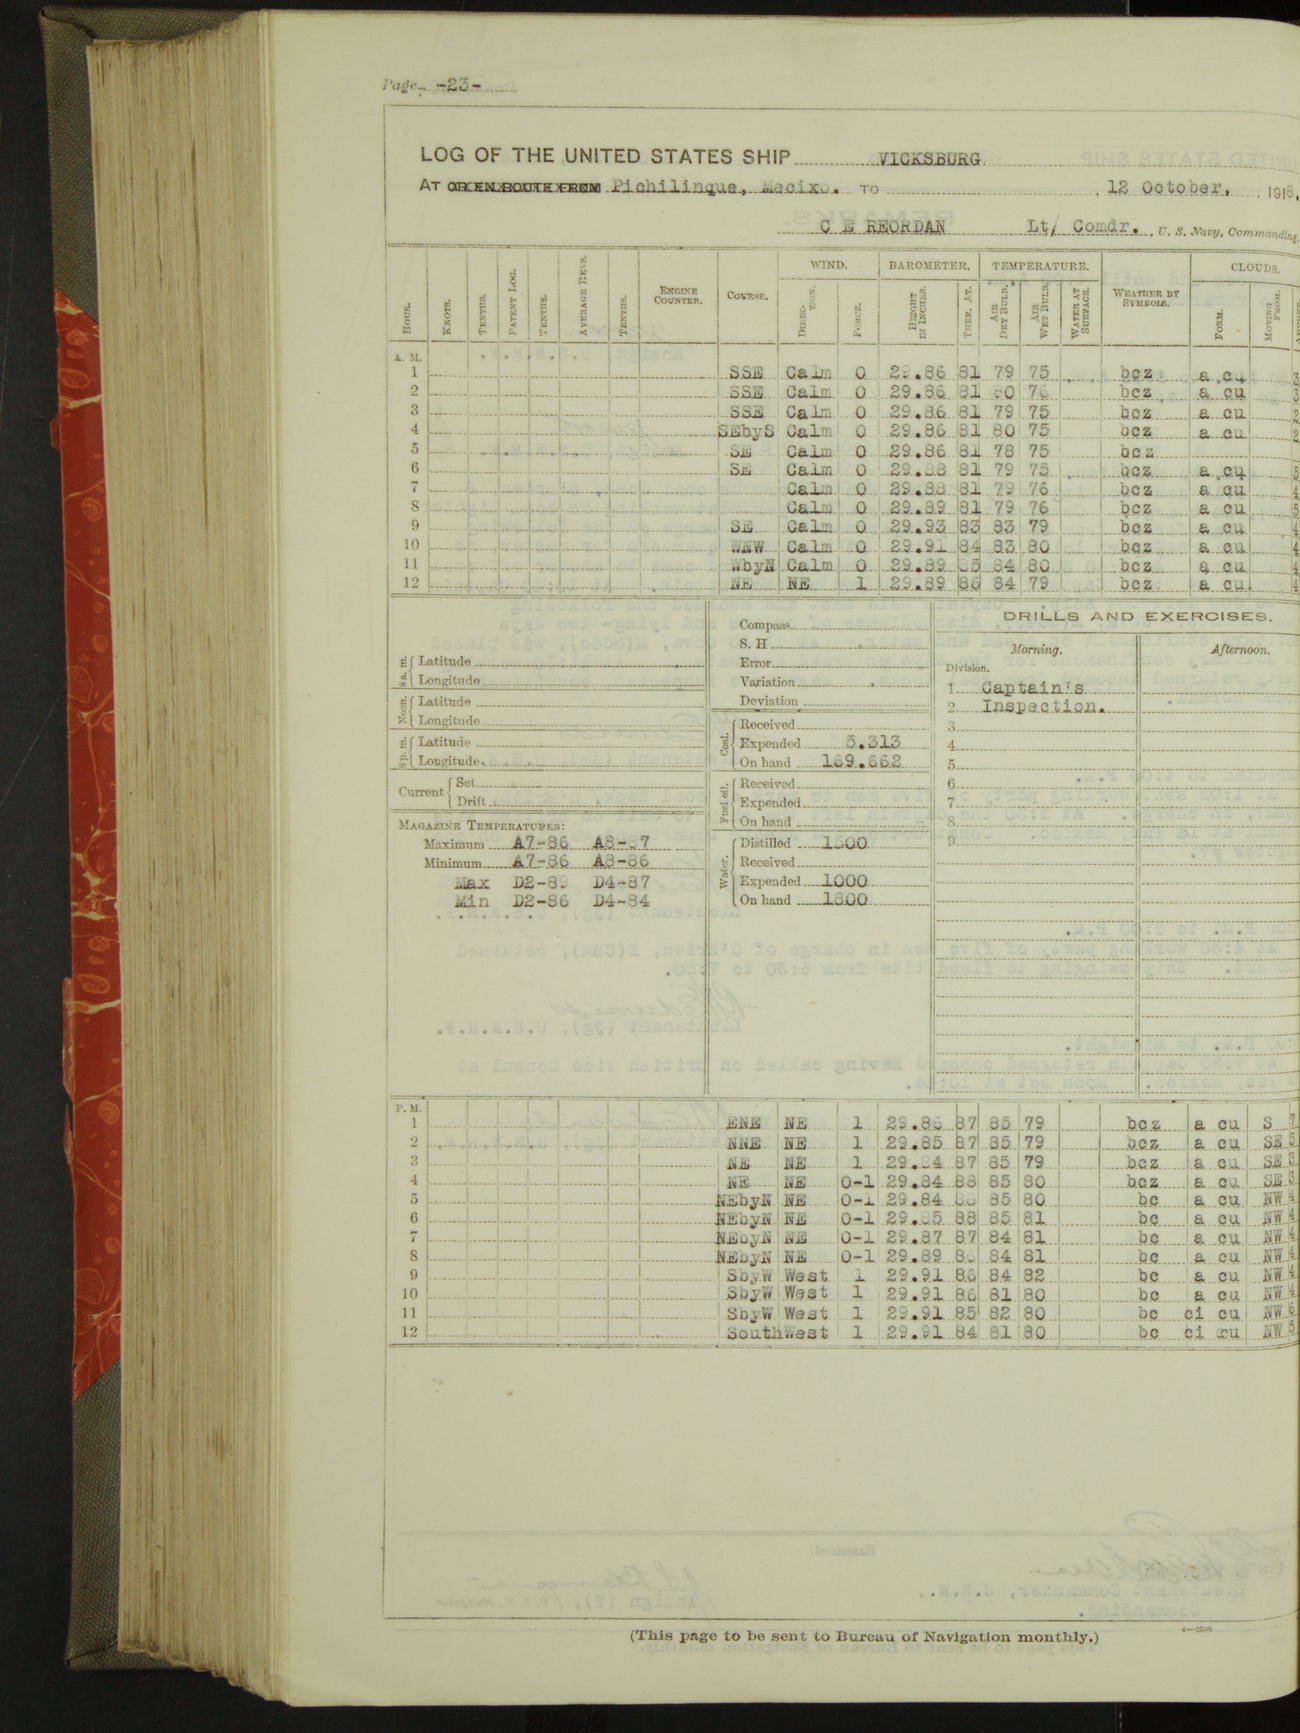 Page -23-
LOG OF THE UNITED STATES SHIP VICKSBURG
AT OR EN ROUTE FROM Pichilinque, Mecixo. TO , 12 October, , 1918.
C E REORDAN Lt/ Comdr. , U. S. Navy, Commanding.
WIND. BAROMETER. TEMPERATURE. CLOUDS.
HOUR. KNOTS. TENTHS. PATENT LOG. TENTHS. AVERAGE REVS. TENTHS. ENGINE COUNTER. COURSE. DIREC-TION. FORCE. HEIGHT IN INCHES. THER. AT. AIR DRY BULB. AIR WET BULB. WATER AT SURFACE. WEATHER BY SYMBOLS. FORM. MOVING FROM.
A. M.
1 SSE Calm 0 29.86 81 79 75 bcz a cu 3
2 SSE Calm 0 29.86 81 80 76 bcz a cu 3
3 SSE Calm 0 29.86 81 79 75 bcz a cu 2
4 SEbyS Calm 0 29.86 81 80 75 bcz a cu 2
5 SE Calm 0 29.86 81 78 75 bcz
6 SE Calm 0 29.88 81 79 75 bcz a cu 5
7 Calm 0 29.88 81 79 76 bcz a cu 4
8 Calm 0 29.89 81 79 76 bcz a cu 5
9 SE Calm 0 29.93 83 83 79 bcz a cu 4
10 WNW Calm 0 29.91 84 83 80 bcz a cu 4
11 WbyN Calm 0 29.89 85 84 80 bcz a cu 4
12 NE NE 1 29.89 86 84 79 bcz a cu 4
8 a.m. Latitude
Longitude
Noon. Latitude
Longitude
8 p.m. Latitude
Longitude
Current Set
Drift
MAGAZINE TEMPERATURES:
Maximum A7-86 A8-87
Minimum A7-86 A8-86
Max D2-89 D4-87
Min D2-86 D4-84
Compass
S. H
Error
Variation
Deviation
Coal. Received
Expended 5.313
On hand 169.662
Fuel oil. Received
Expended
On hand
Water. Distilled 1500
Received
Expended 1000
On hand 1800
DRILLS AND EXERCISES.
Morning. Afternoon.
Division.
1 Captain's
2 Inspection.
3
4
5
6
7
8
9
P. M.
1 ENE NE 1 29.86 87 85 79 bcz a cu S 7
2 NNE NE 1 29.85 87 85 79 bcz a cu SE 5
3 NE NE 1 29.84 87 85 79 bcz a cu SE 3
4 NE NE 0-1 29.84 88 85 80 bcz a cu SE 3
5 NEbyN NE 0-1 29.84 85 80 bc a cu NW 4
6 NEbyN NE 0-1 29.85 88 85 81 bc a cu NW 4
7 NEbyN NE 0-1 29.87 87 84 81 bc a cu NW 4
8 NEbyN NE 0-1 29.89 84 81 bc a cu NW 4
9 SbyW West 1 29.91 86 84 82 bc a cu NW 4
10 SbyW West 1 29.91 86 81 80 bc a cu NW 4
11 SbyW West 1 29.91 85 82 80 bc ci cu NW 6
12 South West 1 29.91 84 81 80 bc ci cu NW 5
(This page to be sent to Bureau of Navigation monthly.)